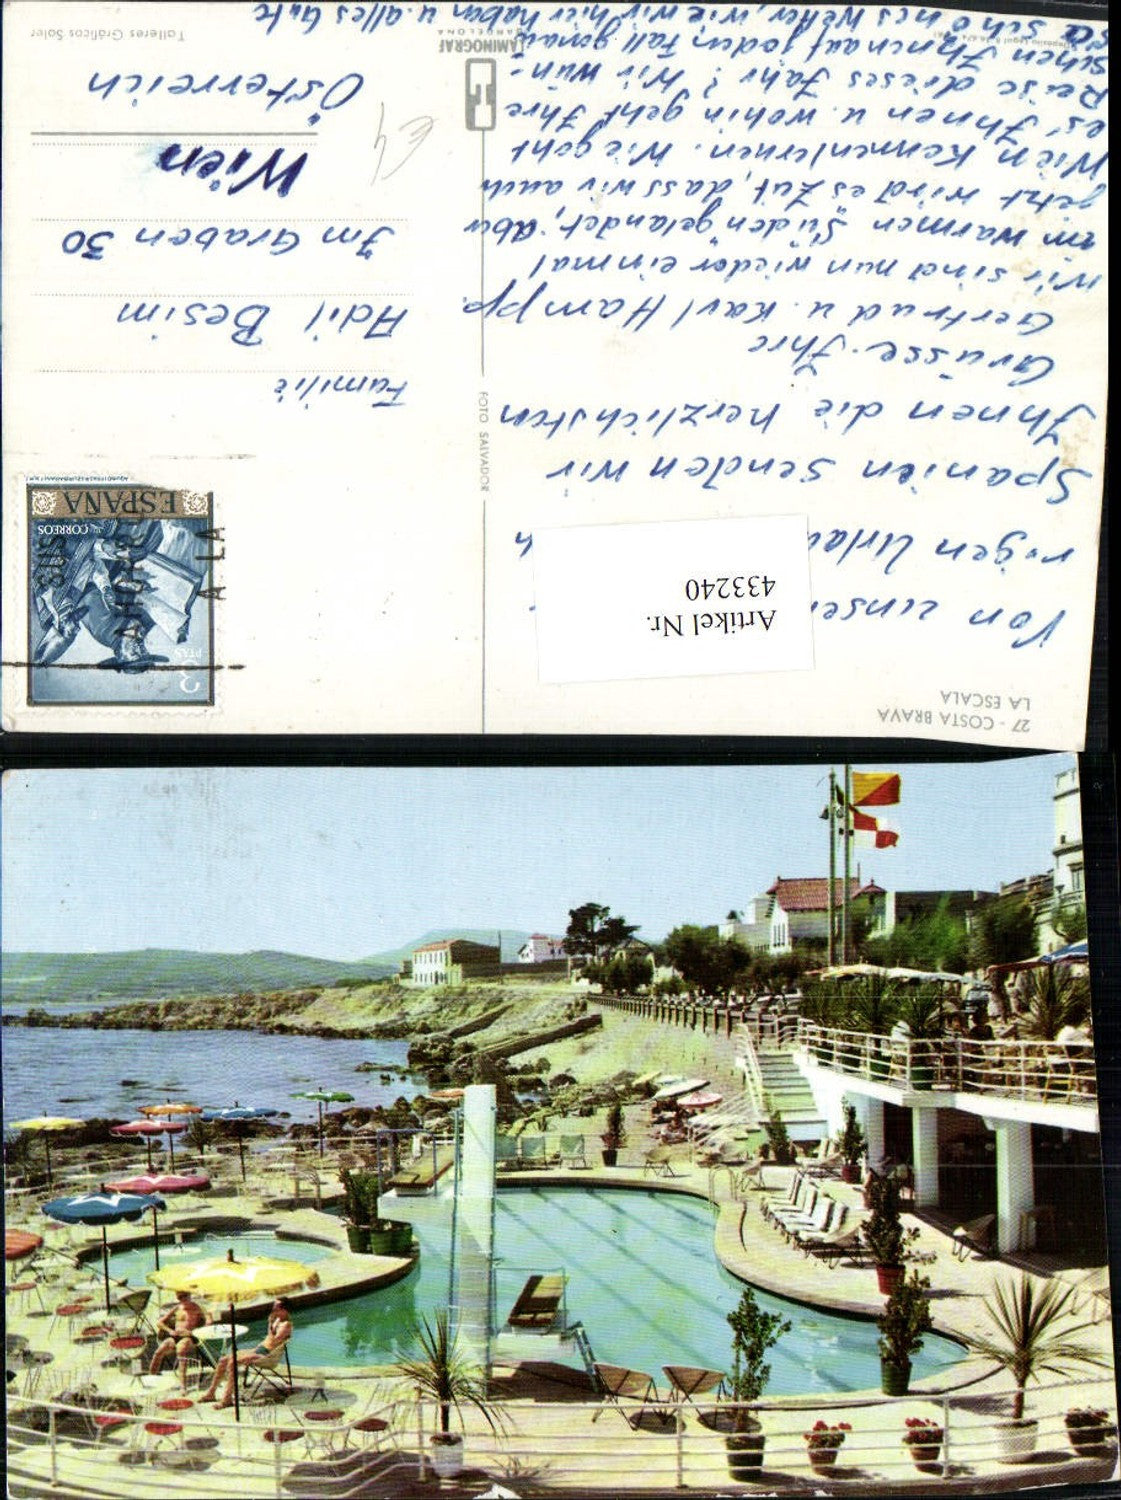 27 - COSTA BRAVA
LA ESCALA
Von unse
rigen Urlau
Spanien senden wir
Ihnen die herzlichsten
Grüsse. Ihre
Gertrud u. Karl Hampp.
Wir sind nun wieder einmal
im warmen "Süden" gelandet, aber
jetzt wird es Zeit, dass wir auch
Wien kennenlernen. Wie geht
es Ihnen u. wohin geht Ihre
Reise dieses Jahr? Wir wün-
schen Ihnen auf jeden Fall genau
so schönes Wetter, wie wir hier haben u. alles Gute
Artikel Nr.
433240
FOTO SALVADOR
LAMINOGRAF
BARCELONA
Talleres Gráficos Soler
3
PTAS
CORREOS
ESPAÑA
A LA
Familie
Adil Besim
Im Graben 30
Wien
Österreich